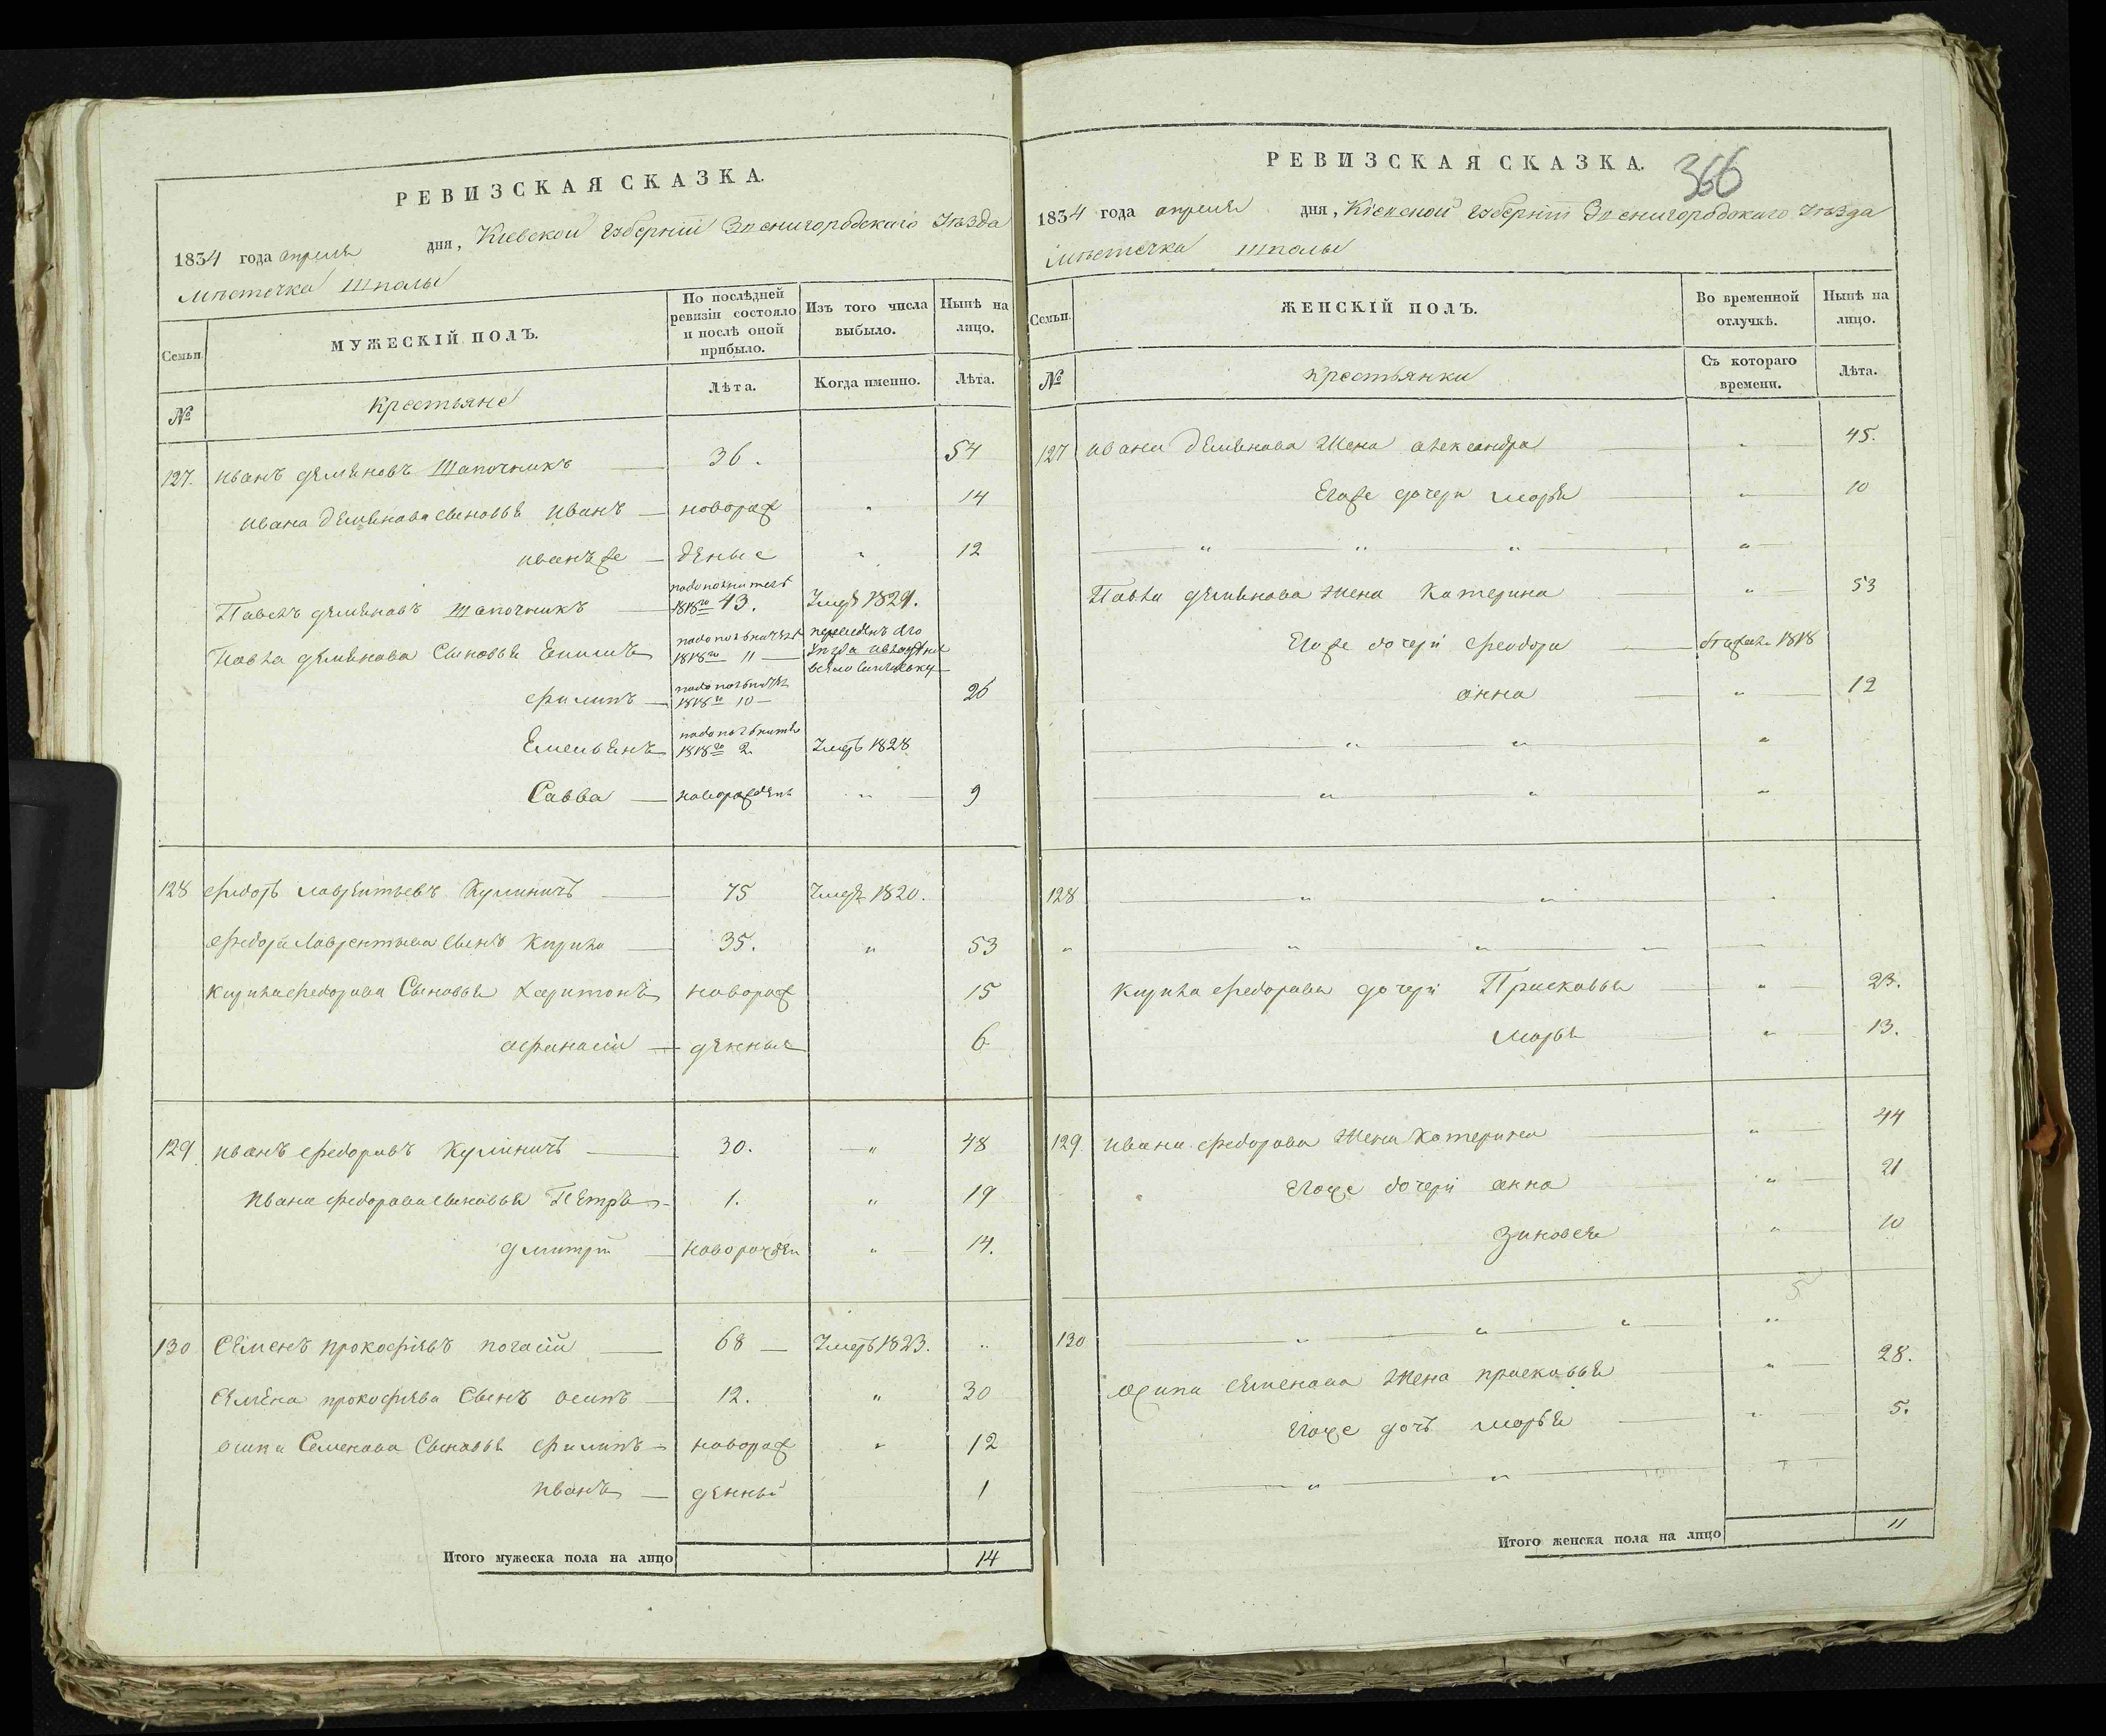 РЕВИЗСКАЯ СКАЗКА.
1834 года апреля дня, Кіевской Губерніи Звенигородскаго Уѣзда
мѣстечка Шполы
Семьи. МУЖЕСКІЙ ПОЛЪ. По послѣдней ревизіи состояло и послѣ оной прибыло. Изъ того числа выбыло. Нынѣ на лицо.
№ Крестьяне Лѣта. Когда именно. Лѣта.
127. иванъ демяновъ Шапочникъ 36. 54
ивана демянова сыновья иванъ новорож " 14
иванъ же деные " 12
Павелъ демяновъ шапочникъ 1818го 43. Умеръ 1829.
Павла демянова Сыновья 1818го 11
филипъ 1818го 10 26
Емельянъ 1818го 2. Умеръ 1828
Савва новорожденъ " 9
128 федоръ лаврентьевъ Кулиничъ 75 Умеръ 1820.
федора Лаврентьева сынъ Кирило 35. " 53
Кирила федорова Сыновья Харитонъ новорож 15
афанасій денные 6
129. иванъ федоровъ Кулиничъ 30. " 48
ивана федорова сыновья Петръ 1. " 19
дмитрій новорожден " 14.
130 Семенъ прокофіевъ 68 Умеръ 1823. "
Семена прокофіева Сынъ осипъ 12. " 30
осипа Семенова Сыновья филипъ новорож " 12
иванъ денный 1
Итого мужеска пола на лицо 14
РЕВИЗСКАЯ СКАЗКА. 366
1834 года апреля дня, Кіевской Губерніи Звенигородскаго Уѣзда
мѣстечка Шполы
Семьи. ЖЕНСКІЙ ПОЛЪ. Во временной отлучкѣ. Нынѣ на лицо.
№ крестьянки Съ котораго времени. Лѣта.
127 ивана демянова Жена александра " 45.
Егоже дочери марья " 10
" " " "
Павла демянова жена Катерина " 53
Егоже дочери феодора 1818
анна " 12
" " "
" " "
128 " " "
" " " "
Кирила федорова дочери Прасковья " 23.
марья " 13.
129. ивана федорова жена Катерина " 44
Егоже дочери анна " 21
зиновея " 10
130 " " " "
осипа семенова Жена прасковья " 28.
Егоже дочь марья " 5.
" "
Итого женска пола на лицо 11